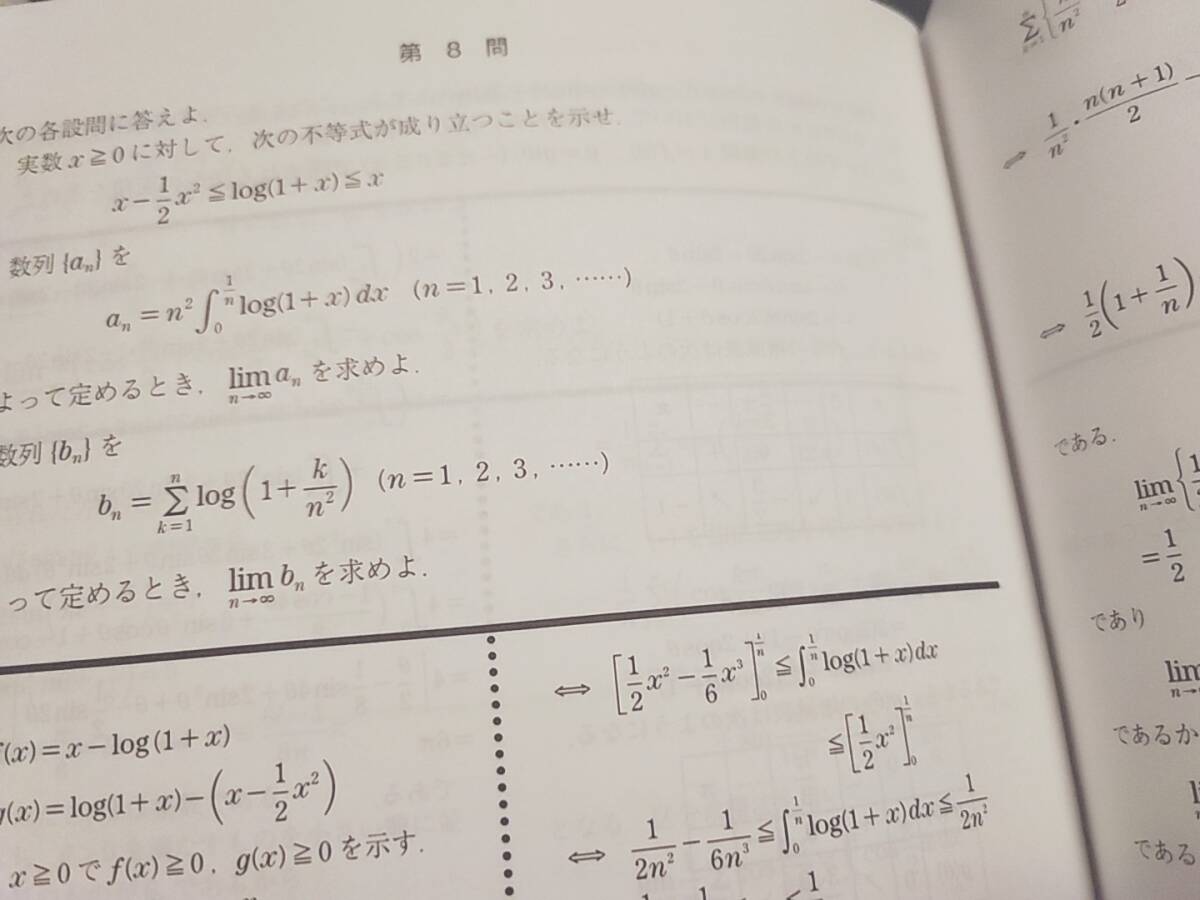 第 8 問
次の各設問に答えよ.
実数 x≧0 に対して, 次の不等式が成り立つことを示せ.
x−\frac{1}{2}x²≦log(1+x)≦x
数列{aₙ}を
aₙ=n²∫₀^{\frac{1}{n}}log(1+x)dx (n=1, 2, 3, ……)
よって定めるとき, lim_{n→∞} aₙ を求めよ.
数列{bₙ}を
bₙ=∑_{k=1}^{n}log(1+\frac{k}{n²}) (n=1, 2, 3, ……)
って定めるとき, lim_{n→∞} bₙ を求めよ.
f(x)=x−log(1+x)
g(x)=log(1+x)−(x−\frac{1}{2}x²)
x≧0 で f(x)≧0, g(x)≧0 を示す.
⇔ [\frac{1}{2}x²−\frac{1}{6}x³]₀^{\frac{1}{n}}≦∫₀^{\frac{1}{n}}log(1+x)dx
≦[\frac{1}{2}x²]₀^{\frac{1}{n}}
⇔ \frac{1}{2n²}−\frac{1}{6n³}≦∫₀^{\frac{1}{n}}log(1+x)dx≦\frac{1}{2n²}
⇔ \frac{1}{n²}・\frac{n(n+1)}{2}−
⇔ \frac{1}{2}(1+\frac{1}{n})
である.
lim_{n→∞}{
=\frac{1}{2}
であり
lim
であるか
である